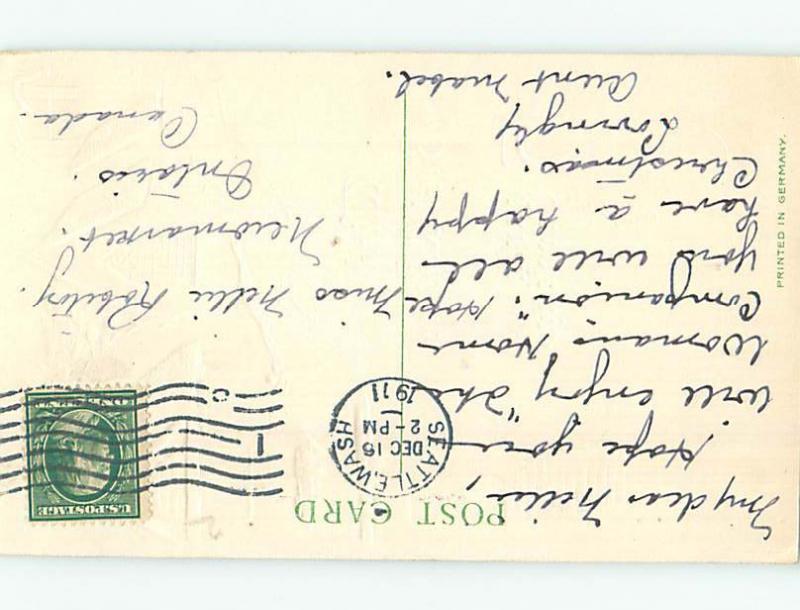 POST CARD
My dear Nellie,
Hope you
will enjoy "The
Woman's Home
Companion". Hope
you will all
have a happy
Christmas.
Lovingly
Aunt Mabel.
SEATTLE, WASH
DEC 16
2-PM
1911
C
1
U.S. POSTAGE
ONE CENT
Miss Nellie
Newmarket.
Ontario.
Canada.
PRINTED IN GERMANY.